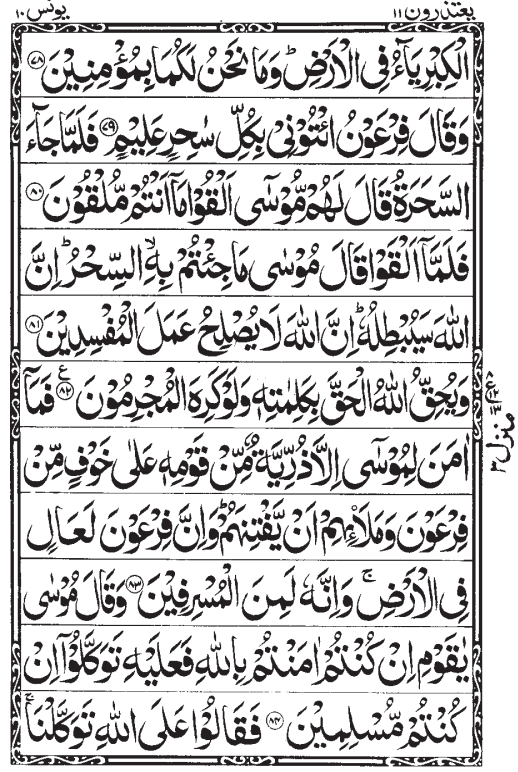 یعتذرون ۱۱
یونس ۱۰
الْكِبْرِيَآءُ فِى الْاَرْضِ ؕ وَمَا نَحْنُ لَكُمَا بِمُؤْمِنِيْنَ ﴿۷۸﴾
وَقَالَ فِرْعَوْنُ ائْتُوْنِىْ بِكُلِّ سٰحِرٍ عَلِيْمٍ ﴿۷۹﴾ فَلَمَّا جَآءَ
السَّحَرَةُ قَالَ لَهُمْ مُّوْسٰٓى اَلْقُوْا مَاۤ اَنْتُمْ مُّلْقُوْنَ ﴿۸۰﴾
فَلَمَّاۤ اَلْقَوْا قَالَ مُوْسٰى مَا جِئْتُمْ بِهِ ۙ السِّحْرُ ؕ اِنَّ
اللّٰهَ سَيُبْطِلُهٗ ؕ اِنَّ اللّٰهَ لَا يُصْلِحُ عَمَلَ الْمُفْسِدِيْنَ ﴿۸۱﴾
وَيُحِقُّ اللّٰهُ الْحَقَّ بِكَلِمٰتِهٖ وَلَوْ كَرِهَ الْمُجْرِمُوْنَ ﴿۸۲﴾ ع فَمَاۤ
اٰمَنَ لِمُوْسٰٓى اِلَّا ذُرِّيَّةٌ مِّنْ قَوْمِهٖ عَلٰى خَوْفٍ مِّنْ
فِرْعَوْنَ وَمَلَا۟ئِهِمْ اَنْ يَّفْتِنَهُمْ ؕ وَاِنَّ فِرْعَوْنَ لَعَالٍ
فِى الْاَرْضِ ۚ وَاِنَّهٗ لَمِنَ الْمُسْرِفِيْنَ ﴿۸۳﴾ وَقَالَ مُوْسٰى
يٰقَوْمِ اِنْ كُنْتُمْ اٰمَنْتُمْ بِاللّٰهِ فَعَلَيْهِ تَوَكَّلُوْۤا اِنْ
كُنْتُمْ مُّسْلِمِيْنَ ﴿۸۴﴾ فَقَالُوْا عَلَى اللّٰهِ تَوَكَّلْنَا ۚ
منزل ۳